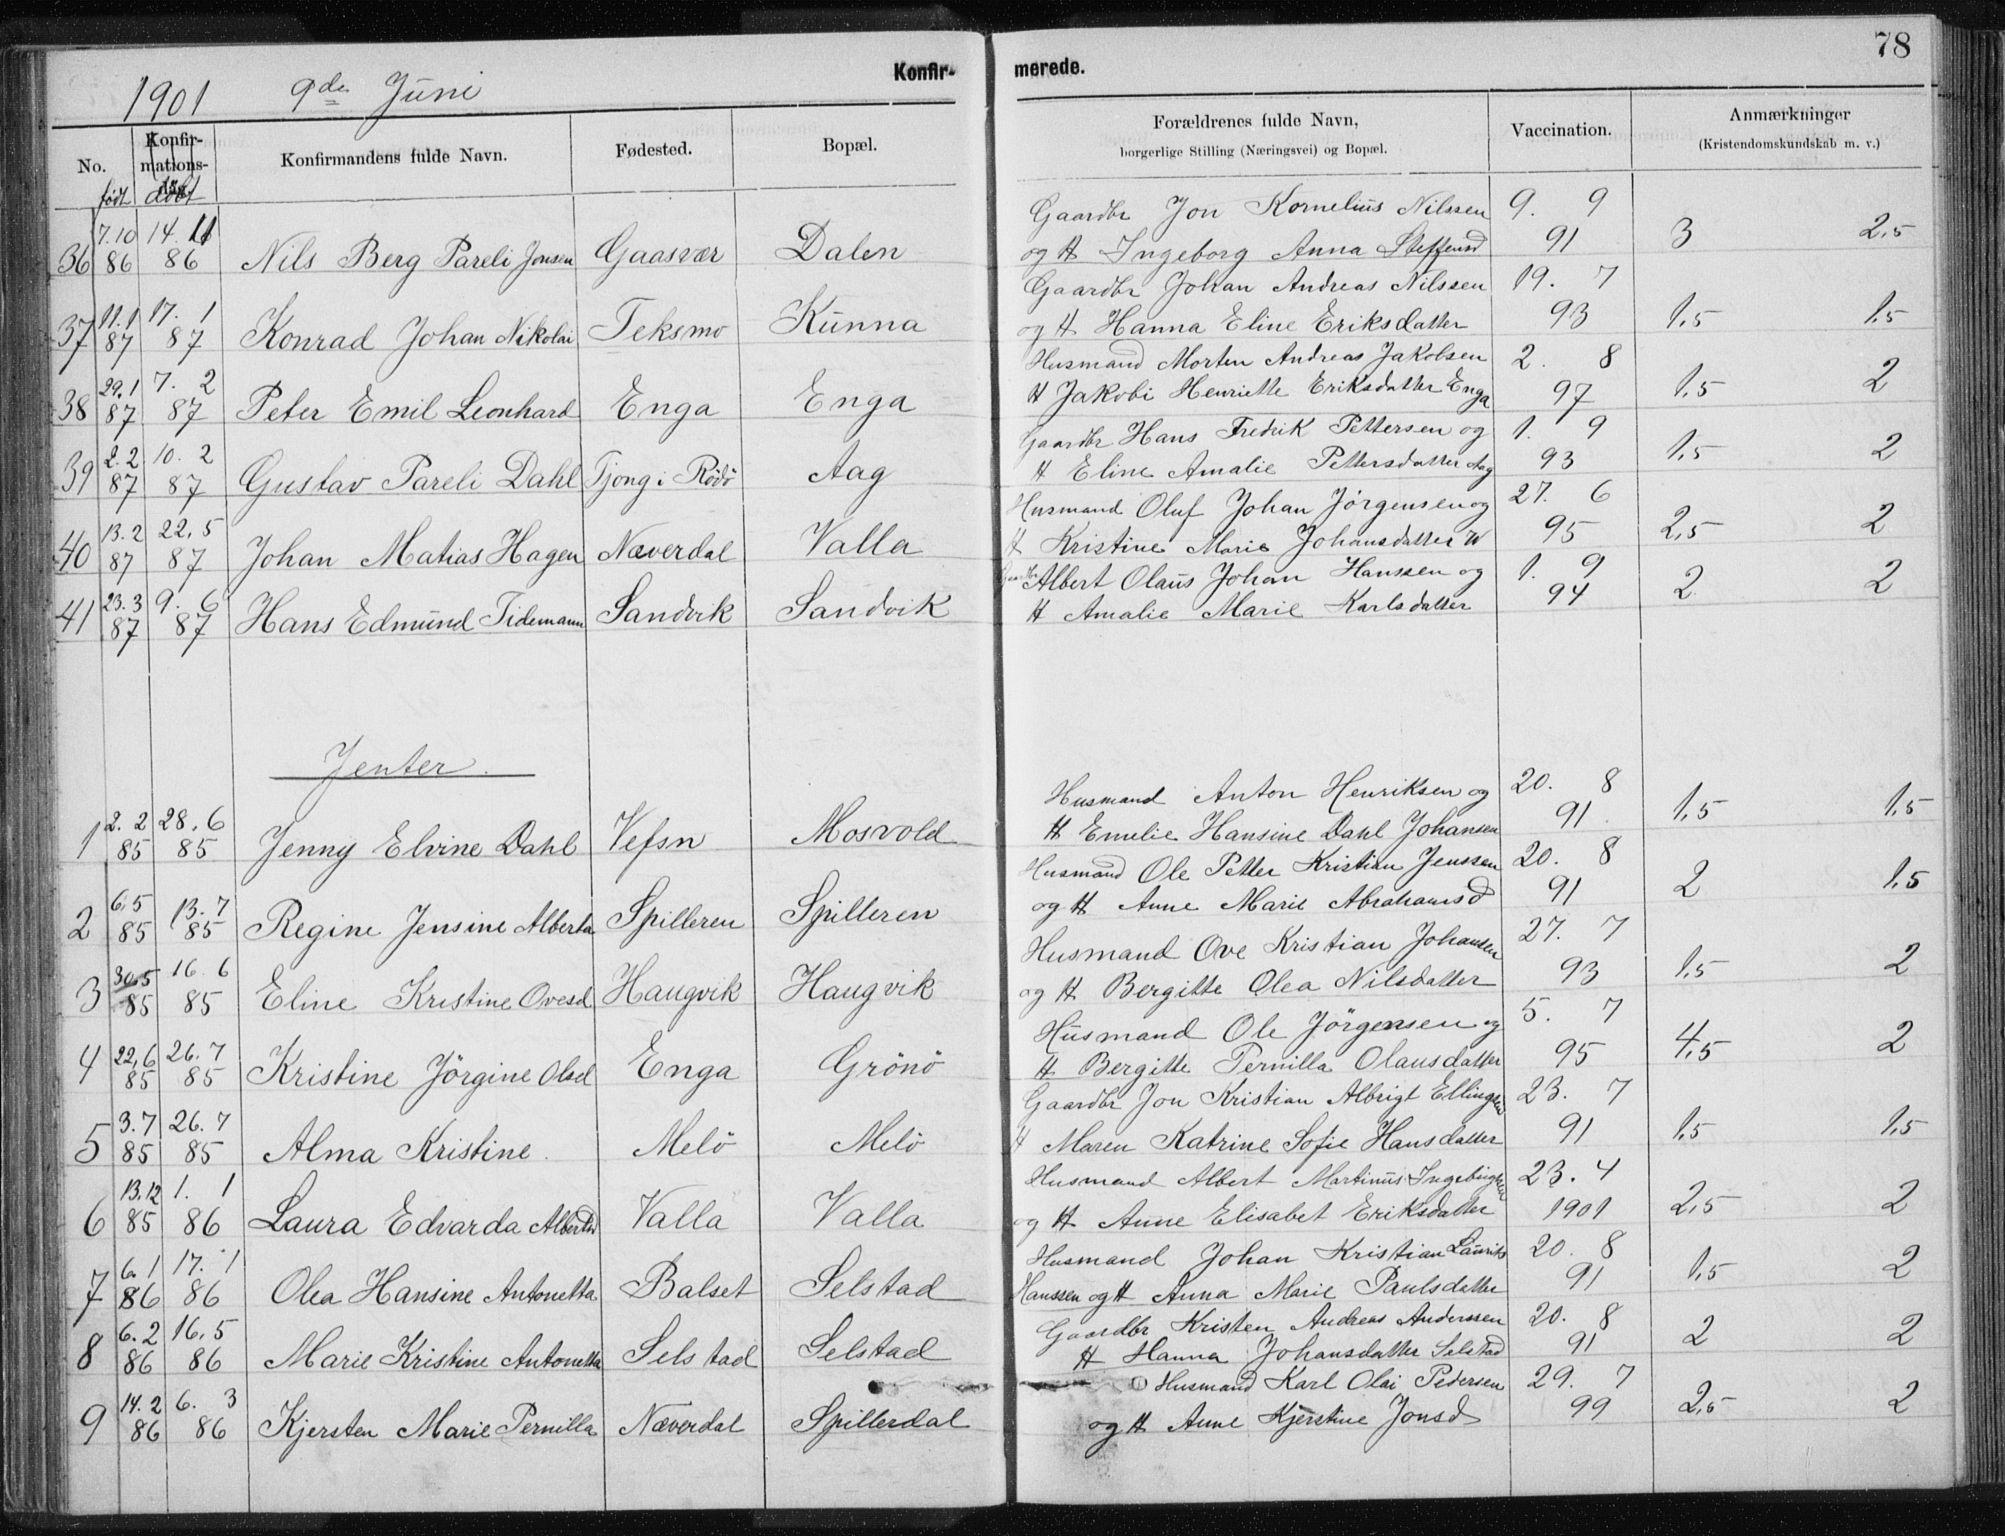 78
Konfir- merede.
1901 9de Juni
No. Konfir-mations-dag. Konfirmandens fulde Navn. Fødested. Bopæl. Forældrenes fulde Navn, borgerlige Stilling (Næringsvei) og Bopæl. Vaccination. Anmærkninger (Kristendomskundskab m. v.)
født døbt
7.10 14. 11 Gaardbr Jon Kornelius Nilssen 9. 9
36 86 86 Nils Berg Pareli Jonsen Gaasvær Dalen og H Ingeborg Anna Steffensd 91 3 2,5
11.1 17. 1 Gaardbr Johan Andreas Nilssen 19. 7
37 87 87 Konrad Johan Nikolai Teksmo Kunna og H Hanna Eline Eriksdatter 93 1,5 1,5
29.1 7. 2 Husmand Morten Andreas Jakobsen 2. 8
38 87 87 Peter Emil Leonhard Enga Enga H Jakobi Henriette Eriksdatter Enga 97 1,5 2
2.2 10. 2 Gaardbr Hans Fredrik Pettersen og 1. 9
39 87 87 Gustav Pareli Dahl Tjong i Rödö Aag H Eline Amalie Pettersdatter Aag 93 1,5 2
13.2 22.5 Husmand Oluf Johan Jörgensen og 27. 6
40 87 87 Johan Matias Hagen Næverdal Valla H Kristine Marie Johansdatter 95 2,5 2
23.3 9. 6 Gaardbr Albert Olaus Johan Hanssen og 1. 9
41 87 87 Hans Edmund Tidemann Sandvik Sandvik H Amalie Marie Karlsdatter 94 2 2
Jenter.
2. 2 28. 6 Husmand Anton Henriksen og 20. 8
1 85 85 Jenny Elvine Dahl Vefsn Mosvold H Emelie Hansine Dahl Johansen 91. 1,5 1,5
6.5 13. 7 Husmand Ole Petter Kristian Jenssen 20. 8
2 85 85 Regine Jensine Alberta Spilleren Spilleren og H Anne Marie Abrahamsd 91 2 1,5
30.5 16. 6 Husmand Ove Kristian Johansen 27. 7
3 85 85 Eline Kristine Ovesd Haugvik Haugvik og H Bergitte Olea Nilsdatter 93 1,5 2
22.6 26. 7 Husmand Ole Jörgensen og 5. 7
4 85 85 Kristine Jörgine Olsd Enga Grönö H Bergitte Pernilla Olausdatter 95 4,5 2
3.7 26. 7 Gaardbr Jon Kristian Albrigt Ellingsen 23. 7
5 85 85 Alma Kristine. Melö Melö H Maren Katrine Sofie Hansdatter 91 1,5 1,5
13.12 1. 1 Husmand Albert Martinus Ingebrigtsen 23. 4
6 85 86 Laura Edvarda Albertsd Valla Valla og H Anne Elisabet Eriksdatter 1901 2,5 2
6.1 17. 1 Husmand Johan Kristian Laurits 20. 8
7 86 86 Olea Hansine Antonetta Balset Selstad Hanssen og H Anna Marie Paulsdatter 91 1,5 2
6. 2 16.5 Gaardbr Kristen Andreas Anderssen 20. 8
8 86 86 Marie Kristine Antonetta Selstad Selstad H Hanna Johansdatter Selstad 91 2 2
14.2 6. 3 Husmand Karl Olai Pedersen 29. 7
9 86 86 Kjersten Marie Pernilla Næverdal Spillerdal og H Anne Kjerstine Jonsd 99 2,5 2